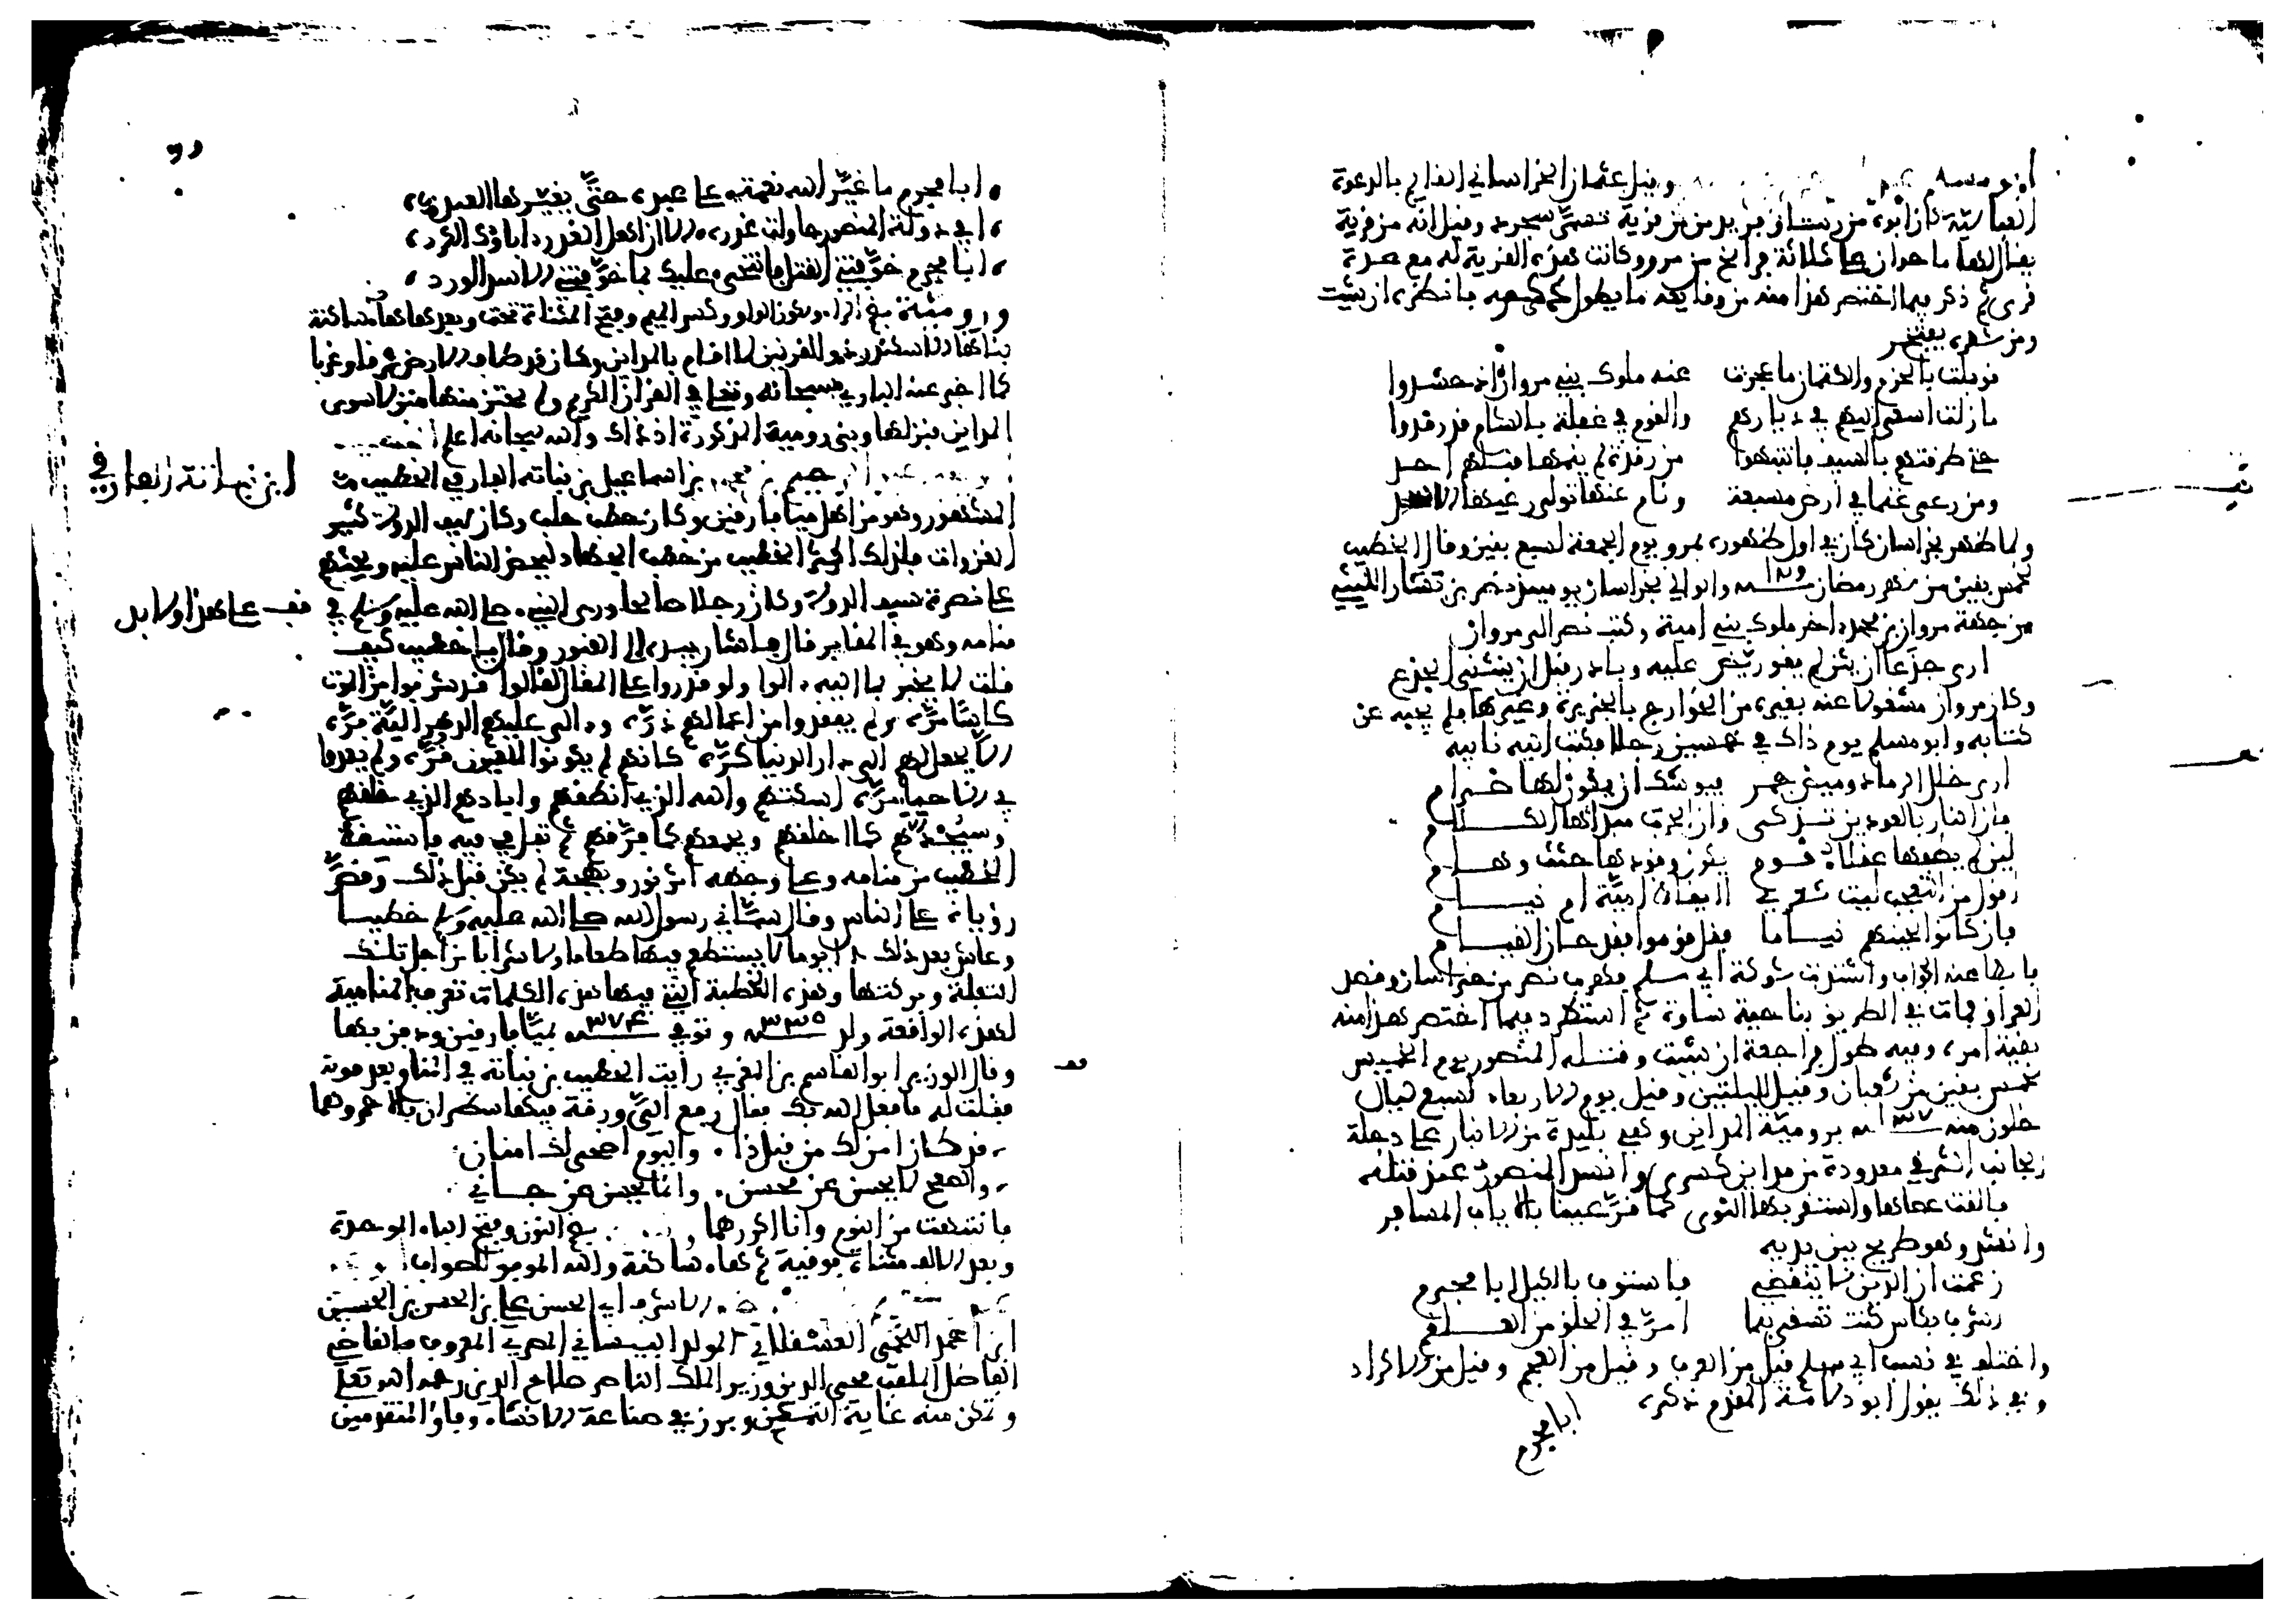 ابو مسلم وقيل عثمان الخراساني القايم بالدعوة
العباسية كان ابوه من رستاق فريدين من قرية تسمى سنجرد وقيل انه من قرية
يقال لها ماخوان على ثلاثة فراسخ من مرو وكانت هذه القرية له مع عدة
قرى ثم ذكر فيما اختصر هذا منه من وقايعه ما يطول فانظره ان شئت
ومن شعره يفتخر
قد نلت بالحزم والكتمان ما عجزت عنه ملوك بني مروان اذ حشدوا
ما زلت اسعى اليهم في ديارهم والقوم في غفلة بالشام قد رقدوا
حتى طرقتهم بالسيف فانتبهوا من رقدة لم ينمها قبلهم احد
ومن رعى غنما في ارض مسبعة ونام عنها تولى رعيها الاسد
ولما ظهر بخراسان كان في اول ظهوره بمرو يوم الجمعة لسبع بقين وقال الخطيب
لخمس بقين من شهر رمضان والوالي بخراسان يوميذ نصر بن الليثي
من جهة مروان بن محمد اخر ملوك بني امية وكتب نصر الى مروان
ارى جذعا ان يثن لم يقو ريض عليه وبادر قبل ان ينثني الجذع
وكان مروان مشغولا عنه بغيره من الخوارج بالجزيرة وغيرها فلم يجبه عن
كتابه وابو مسلم يوم ذاك في خمسين رجلا فكتب اليه ثانيه
ارى خلل الرماد وميض جمر ويوشك ان يكون لها ضرام
فان النار بالعودين تذكى وان الحرب مبداها الكلام
لين لم يطفها عقلاء قوم يكون وقودها جثث وهام
اقول من التعجب ليت شعري اايقاظ امية ام نيام
فان كانوا لحينهم نياما فقل قوموا فقد حان القيام
فابطا عنه الجواب واشتدت شوكة ابي مسلم فهرب نصر من خراسان وقصد
العراق فمات في الطريق بناحية ساوة ثم استطرد فيما اختصر هذا منه
بقية امره وفيه طول فراجعه ان شئت وقتله المنصور يوم الخميس
لخمس بقين من شعبان وقيل لليلتين وقيل يوم الاربعاء لسبع ليال
خلون منه سنة ١٣٧ برومية المداين وهي بليدة من الانبار على دجلة
بالجانب الشرقي معدودة من مداين كسرى وانشد المنصور عند قتله
فالقت عصاها واستقر بها النوى كما قر عينا بالاياب المسافر
وانشد وهو طريح بين يديه
زعمت ان الدين لا يقتضى فاستوف بالكيل ابا مجرم
اشرب بكاس كنت تسقي بها امر في الحلق من العلقم
واختلف في نسب ابي مسلم فقيل من العرب وقيل من العجم وقيل من الاكراد
وفي ذلك يقول ابو دلامة المقدم ذكره
ابا مجرم
ابا مجرم ما غير الله نعمة على عبده حتى يغيرها العبد
افي دولة المنصور حاولت غدره الا ان اهل الغدر اباؤك الكرد
ابا مجرم خوفتني القتل فانتحى عليك بما خوفتني الاسد الورد
ورومية بضم الراء وسكون الواو وكسر الميم وفتح المثناة تحت وبعدها هاء ساكنة
بناها الاسكندر ذو القرنين لما اقام بالمداين وكان قد طاف الارض شرقا وغربا
كما اخبر عنه الباري سبحانه وتعلى في القران الكريم ولم يختر منها منزلا سوى
المداين فنزلها وبنى رومية المذكورة اذ ذاك والله سبحانه اعلم
بن اسماعيل بن نباته الفارقي الخطيب
ابن نباتة الفارقي
المشهور وهو من اهل ميافارقين وكان خطيب حلب وكان سيف الدولة كثير
الغزوات فلذلك اكثر الخطيب من خطب الجهاد ليحض الناس عليه ويحثهم
على نصرة سيف الدولة وكان رجلا صالحا وراى النبي صلى الله عليه وسلم في
قف على هذا وتامل
منامه وهو في المقابر قال فاشار بيده الى القبور وقال يا خطيب كيف
قلت لا يخبرون بما اليه الوا ولو قدروا على المقال لقالوا قد شربوا من الموت
كاسا مرة ولم يفقدوا من اعمالهم ذرة والى عليهم الدهر الية برة
الا يجعل لهم الى دار الدنيا كرة كانهم لم يكونوا للعيون قرة ولم يعدوا
في الاحياء مرة اسكتهم والله الذي انطقهم وابادهم الذي خلقهم
وسيجدهم كما اخلقهم ويجمعهم كما فرقهم ثم تفل في فيه فاستيقظ
الخطيب من منامه وعلى وجهه اثر نور وبهجة لم يكن قبل ذلك وقص
رؤياه على الناس وقال سماني رسول الله صلى الله عليه وسلم خطيبا
وعاش بعد ذلك ١٨ يوما لا يستطعم فيها طعاما ولا شرابا من اجل تلك
التفلة وبركتها وهذه الخطبة التي فيها هذه الكلمات تعرف بالمنامية
لهذه الواقعة ولد سنة ٣٣٥ وتوفي سنة ٣٧٤ بميافارقين ودفن بها
وقال الوزير ابو القاسم بن المغربي رايت الخطيب بن نباته في المنام بعد موته
فقلت له ما فعل الله بك فقال رفع الي ورقة فيها سطران بالاحمر وهما
قد كان امن لك من قبل ذا واليوم اضحى لك امنان
والصفح لا يحسن عن محسن وانما يحسن عن جاني
فانتبهت من النوم وانا اكررهما بضم النون وفتح الباء الموحدة
وبعد الالف مثناة فوقية ثم هاء ساكنة والله الموفق للصواب
الاشرف ابي الحسن علي بن الحسن بن الحسين
ابن احمد اللخمي العسقلاني المولد البيساني المصري المعروف بالقاضي
الفاضل الملقب محيي الدين وزير الملك الناصر صلاح الدين رحمه الله تعلى
وتمكن منه غاية التمكين وبرز في صناعة الانشاء وفاق المتقدمين